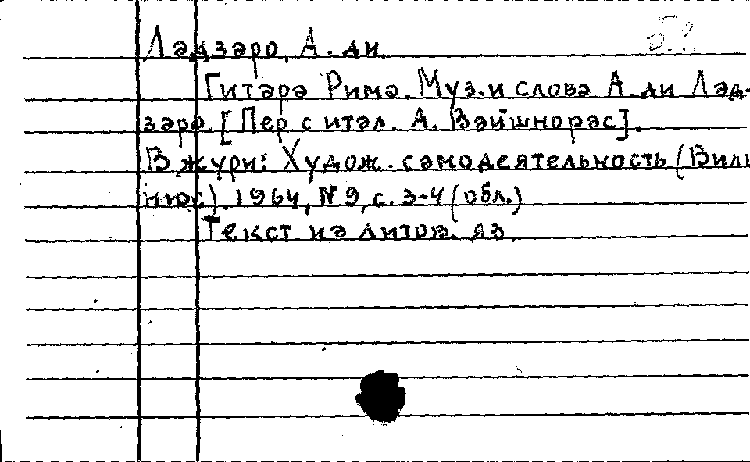 Ладзаро, А. ди
Гитара Рима. Муз. и слова А. ди Лад-
заро. [Пер с итал. А. Вайшнорас].
В журн: Худож. самодеятельность (Виль
нюс). 1964, № 9, с. 3-4 (обл.)
Текст на литов. яз.